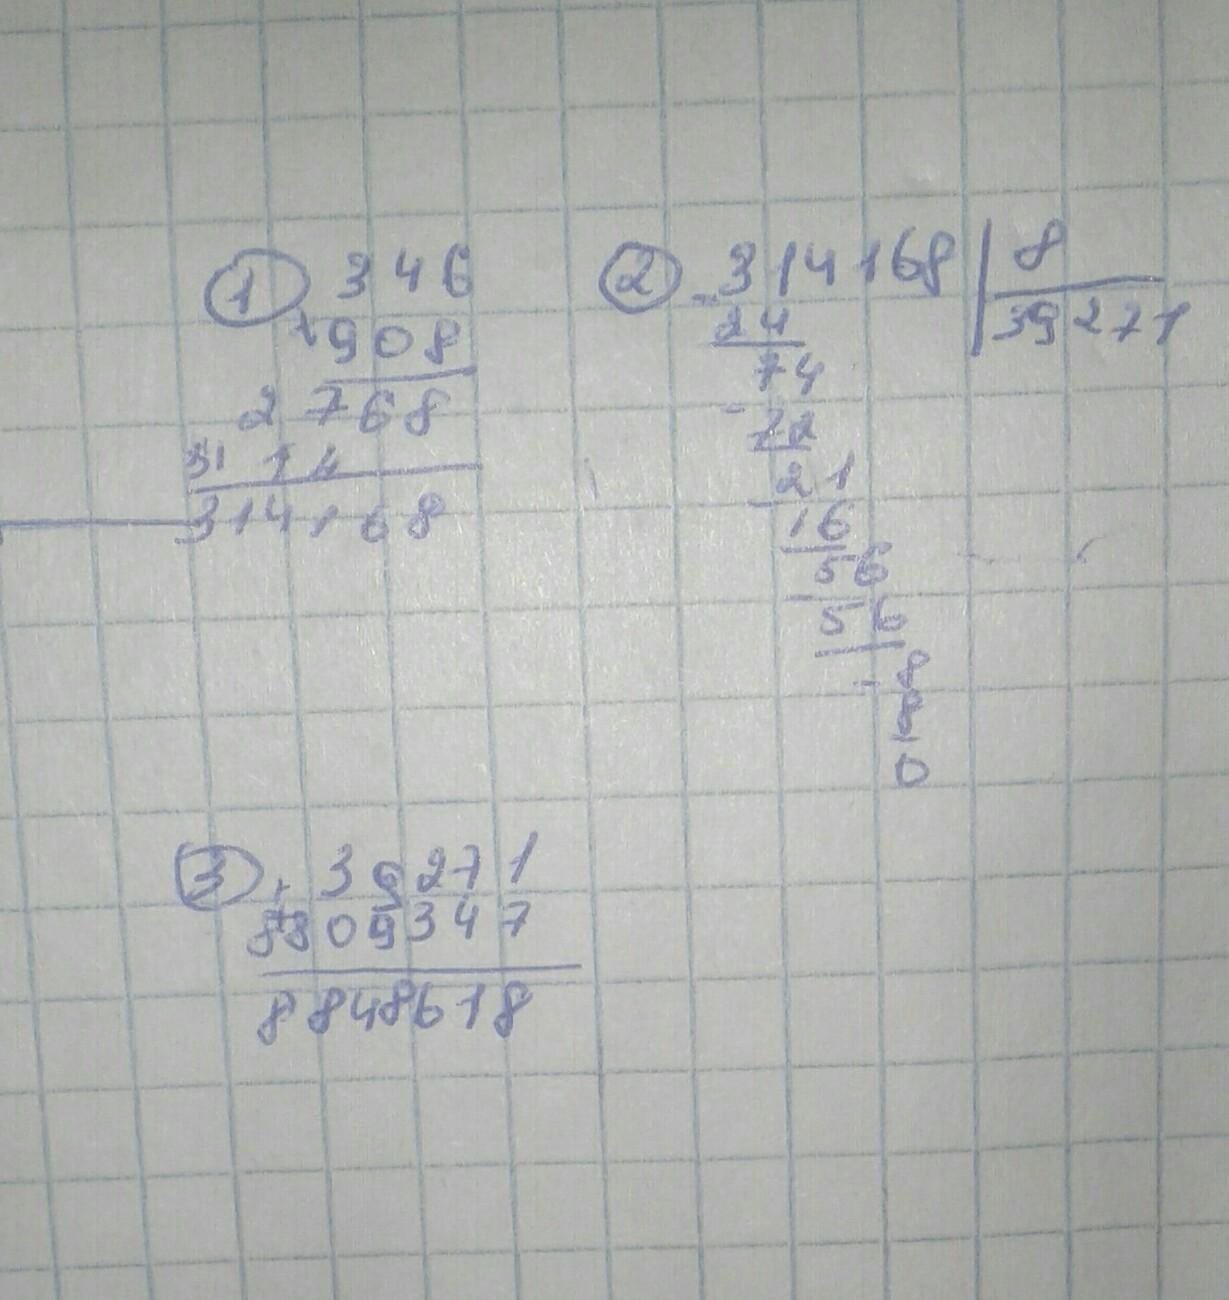 ① 346
×908
2768
3114
314168
② -314168 | 8
24 39271
74
-72
21
-16
56
-56
8
-8
0
③ + 39271
8809347
8848618